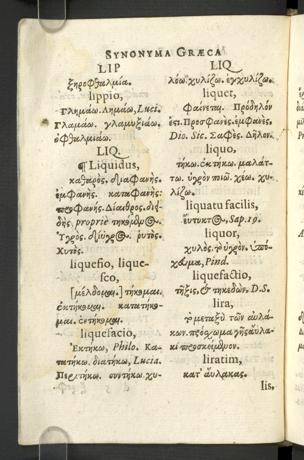 SYNONYMA GRÆCA
LIP
ξηροφθαλμία.
lippio,
Γλημάω. Λημάω, Luci.
Γλαμάω. γλαμυξιάω.
ὀφθαλμιάω.
LIQ
¶ Liquidus,
καθαρὸς. διαφανὴς.
ἐμφανὴς. καταφανὴς:
προφανὴς. Δίαθρος.
propriè τηκόμενος.
Ὑγρὸς. δίυγρος. ῥυτὸς.
χυτὸς.
liquefio, lique-
sco,
[μέλδομαι] τήκομαι.
ἐκτήκομαι. κατατήκο-
μαι. ἐντήκομαι.
liquefacio,
Ἐκτήκω, Philo. Κα-
τατήκω. διατήκω, Lucia.
Περιτήκω. συντήκω. χυ-
LIQ
λόω. χυλίζω. ἐγχυλίζω.
liquet,
Φαίνεται. Πρόδηλόν
ἐστι. Προφανὲς. ἐμφανὲς,
Dio. Sic. Σαφὲς. Δῆλον.
liquo,
τήκω. ἐκτήκω. μαλάτ-
τω. ὑγρὸν ποιῶ. χέω. χυ-
λίζω.
liquatu facilis,
εὔτηκτος,
liquor,
χυλὸς. τὸ ὑγρόν.
Pind.
liquefactio,
τῆξις, & τηκεδὼν. D.S.
lira,
τὸ μεταξὺ τῶν αὐλά-
κων. πρόχωμα γῆς αὔλα-
κι προσκείμενον.
liratim,
κατ' αὔλακας.
lis,